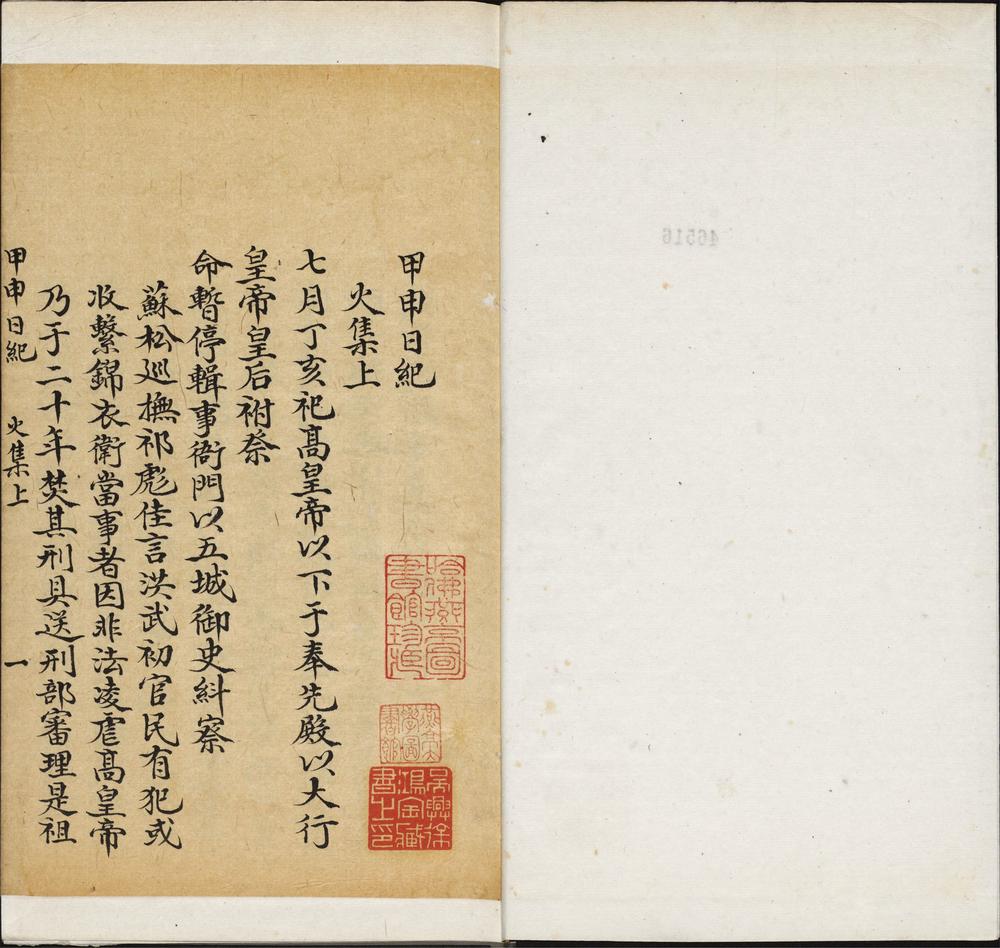 甲申日紀
火集上
七月丁亥祀高皇帝以下于奉先殿以大行
皇帝皇后祔祭
命暫停輯事衙門以五城御史糾察
蘇松廵撫祁彪佳言洪武初官民有犯或
收繫錦衣衛當事者因非法凌虐高皇帝
乃于二十年焚其刑具送刑部審理是祖
甲申日紀 火集上 一
哈佛燕京圖
書館珍藏
燕京大
學圖
書館
吳興徐
鴻寶藏
書之印
46516